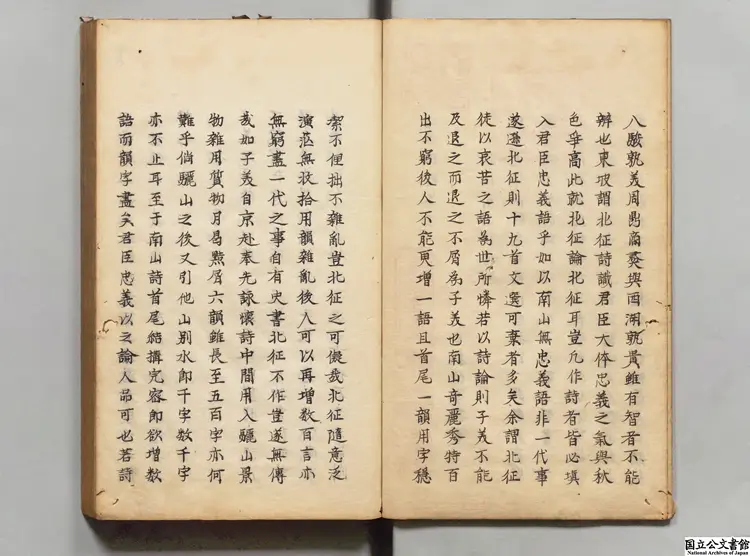 八駿孰美周鼎商彜與西湖孰貴雖有智者不能
辨也東坡謂北征詩識君臣大体忠義之氣與秋
色爭高此就北征論北征耳豈凡作詩者皆必填
入君臣忠義語乎如以南山無忠義語非一代事
遂遜北征則十九首文選可棄者多矣余謂北征
徒以哀苦之語為世所憐若以詩論則子美不能
及退之而退之不屑為子美也南山奇麗秀特百
出不窮後人不能更增一語且首尾一韻用字穩
絜不俚拙不雜亂豈北征之可儗哉北征隨意泛
演茫無收拾用韻雜亂後人可以再增数百言亦
無窮盡一代之事自有史書北征不作豈遂無傳
哉如子美自京赴奉先詠懷詩中間用入驪山景
物雜用質物月曷㸃屑六韻雖長至五百字亦何
難乎倘驪山之後又引他山別水即千字数千字
亦不止耳至于南山詩首尾結搆完密即欲增数
語而韻字盡矣君臣忠義以之論人品可也若詩
国立公文書館
National Archives of Japan